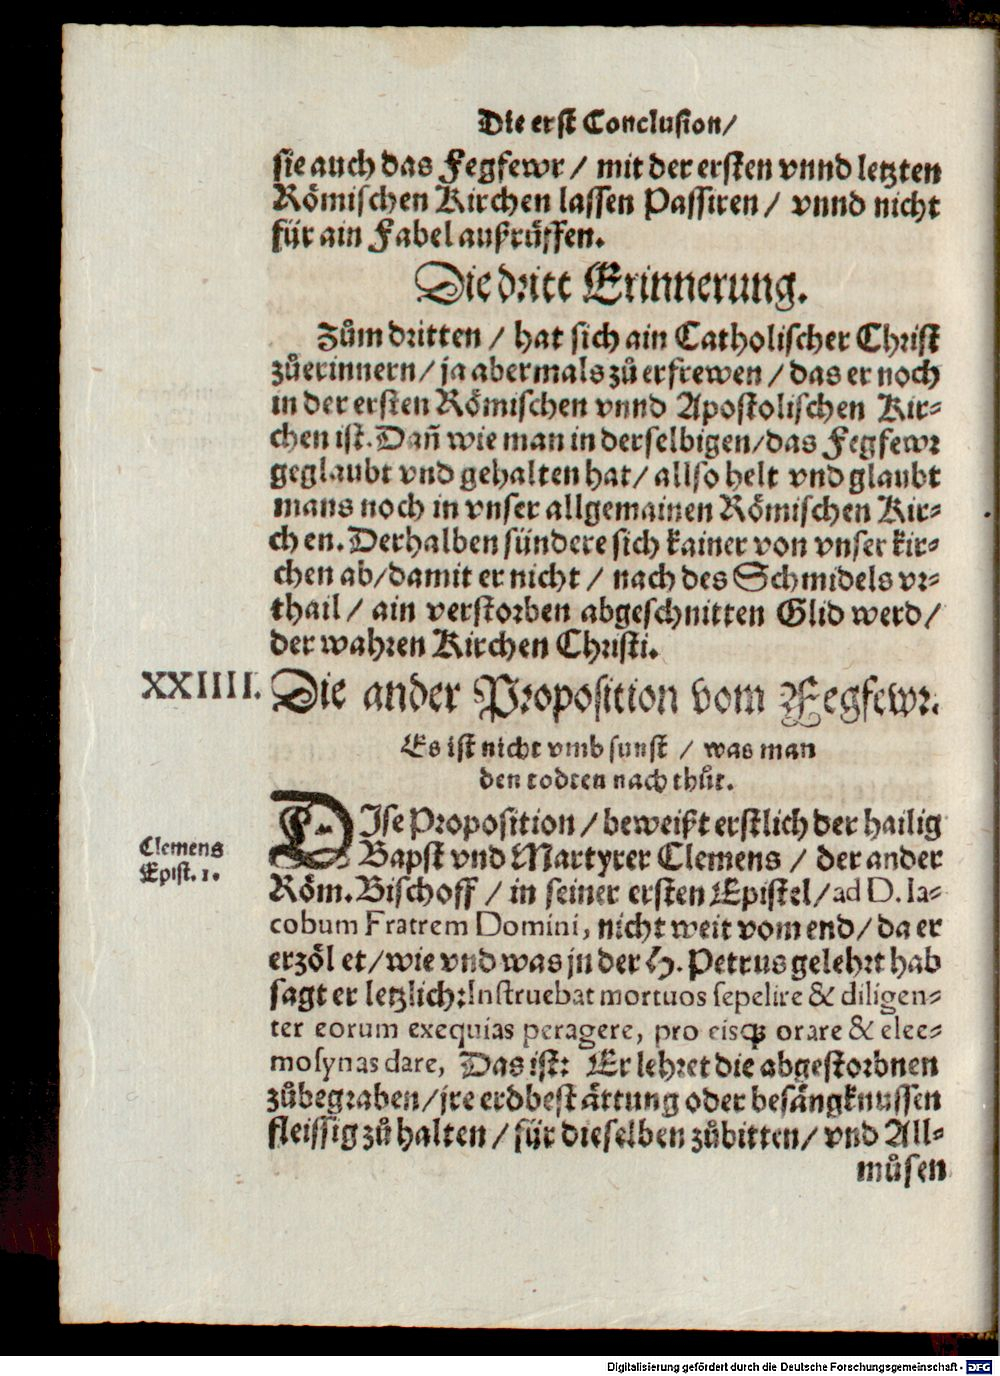 Die erst Conclusion/
sie auch das Fegfewr / mit der ersten vnnd letzten
Römischen Kirchen lassen Passiren / vnnd nicht
für ain Fabel außrüffen.
Die dritt Erinnerung.
Zům dritten / hat sich ain Catholischer Christ
zůerinnern / ja abermals zů erfrewen / das er noch
in der ersten Römischen vnnd Apostolischen Kir-
chen ist. Dañ wie man in derselbigen/das Fegfewr
geglaubt vnd gehalten hat/ allso helt vnd glaubt
mans noch in vnser allgemainen Römischen Kir-
chen. Derhalben sündere sich kainer von vnser kir-
chen ab/damit er nicht / nach des Schmidels vr-
thail / ain verstorben abgeschnitten Glid werd/
der wahren Kirchen Christi.
XXIIII. Die ander Proposition vom Fegfewr.
Es ist nicht vmb sunst / was man
den todten nach thůt.
DIse Proposition / beweißt erstlich der hailig
Clemens Bapst vnd Martyrer Clemens / der ander
Epist. 1. Röm. Bischoff / in seiner ersten Epistel/ad D. Ia-
cobum Fratrem Domini, nicht weit vom end/ da er
erzölet/wie vnd was jn der H. Petrus gelehrt hab
sagt er letzlich: Instruebat mortuos sepelire & diligen-
ter eorum exequias peragere, pro eisq; orare & elee-
mosynas dare, Das ist: Er lehret die abgestorbnen
zůbegraben/jre erdbestättung oder besängknussen
fleissig zů halten / für dieselben zůbitten/ vnd All-
můsen
Digitalisierung gefördert durch die Deutsche Forschungsgemeinschaft - DFG